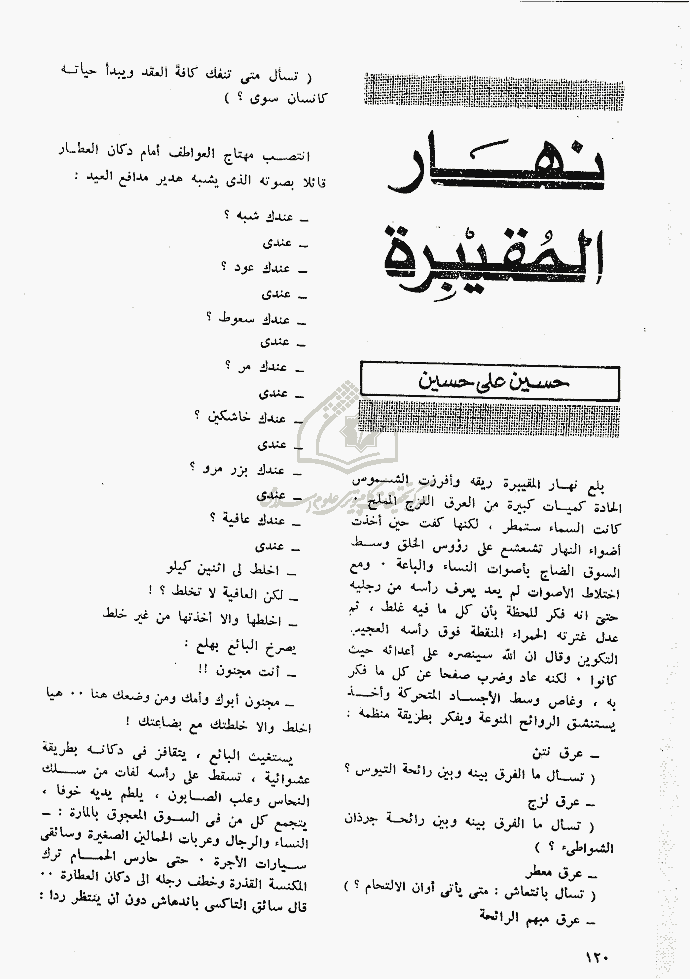 نهار
المقيبرة
حسين على حسين
بلع نهار المقيبرة ريقه وأفرزت الشموس
الحادة كميات كبيرة من العرق اللزج المملح ٠
كانت السماء ستمطر ، لكنها كفت حين أخذت
أضواء النهار تشعشع على رؤوس الخلق وسط
السوق الضاج بأصوات النساء والباعة ٠ ومع
اختلاط الأصوات لم يعد يعرف رأسه من رجليه
حتى انه فكر للحظة بأن كل ما فيه غلط ، ثم
عدل غترته الحمراء المنقطة فوق رأسه العجيب
التكوين وقال ان الله سينصره على أعدائه حيث
كانوا ٠ لكنه عاد وضرب صفحا عن كل ما فكر
به ، وغاص وسط الأجساد المتحركة وأخذ
يستنشق الروائح المنوعة ويفكر بطريقة منظمة :
ــ عرق نتن
( تسأل ما الفرق بينه وبين رائحة التيوس ؟
ــ عرق لزج
( تسأل ما الفرق بينه وبين رائحة جرذان
الشواطىء ؟ )
ــ عرق معطر
( تسأل بانتعاش : متى يأتى أوان الالتحام ؟ )
ــ عرق مبهم الرائحة
( تسأل متى تنفك كافة العقد ويبدأ حياته
كانسان سوى ؟ )
انتصب مهتاج العواطف أمام دكان العطار
قائلا بصوته الذى يشبه هدير مدافع العيد :
ــ عندك شبه ؟
ــ عندى
ــ عندك عود ؟
ــ عندى
ــ عندك سعوط ؟
ــ عندى
ــ عندك مر ؟
ــ عندى
ــ عندك خاشكين ؟
ــ عندى
ــ عندك بزر مرو ؟
ــ عندى
ــ عندك عافية ؟
ــ عندى
ــ اخلط لى اثنين كيلو
ــ لكن العافية لا تخلط ؟ !
ــ اخلطها والا أخذتها من غير خلط
يصرخ البائع بهلع :
ــ أنت مجنون !!
ــ مجنون أبوك وأمك ومن وضعك هنا ٠٠ هيا
اخلط والا خلطتك مع بضاعتك !
يستغيث البائع ، يتقافز فى دكانه بطريقة
عشوائية ، تسقط على رأسه لفات من سلك
النحاس وعلب الصابون ، يلطم يديه خوفا ،
يتجمع كل من فى السوق المعجوق بالمارة : ــ
النساء والرجال وعربات الحمالين الصغيرة وسائقى
سيارات الأجرة ٠ حتى حارس الحمام ترك
المكنسة القذرة وخطف رجله الى دكان العطارة ٠٠
قال سائق التاكسى باندهاش دون أن ينتظر ردا :
١٢٠